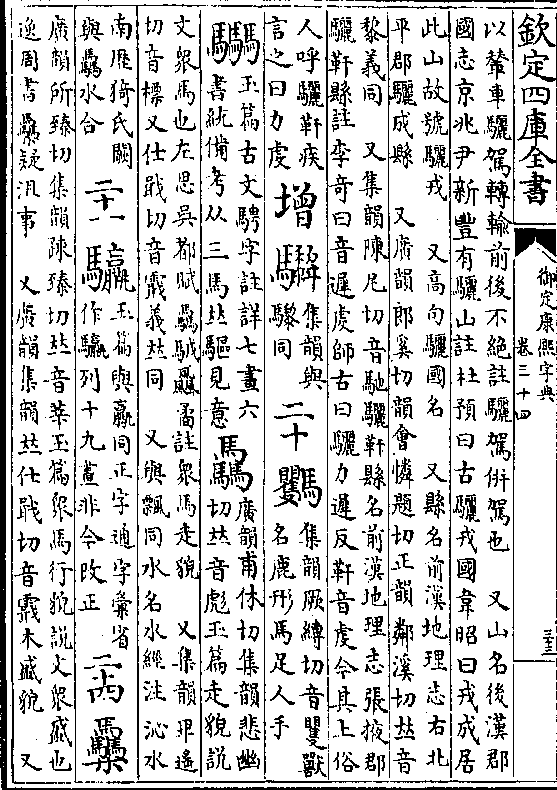 欽定四庫全書
御定康熙字典
卷三十四
三十三
以輦車驪駕轉輸前後不絕註驪駕併駕也 又山名後漢郡
國志京兆尹新豐有驪山註杜預曰古驪戎國韋昭曰戎成居
此山故號驪戎 又高句驪國名 又縣名前漢地理志右北
平郡驪成縣 又廣韻郎奚切韻會憐題切正韻鄰溪切𠀤音
黎義同 又集韻陳尼切音馳驪靬縣名前漢地理志張掖郡
驪靬縣註李奇曰音遲虔師古曰驪力遲反靬音虔今其土俗
人呼驪靬疾
言之曰力虔 增 集韻與
同 二十 集韻厥縛切音矍獸
名鹿形馬足人手
玉篇古文騁字註詳七畫六
書統備考从三馬𠀤驅見意 驫 廣韻甫休切集韻悲幽
切𠀤音彪玉篇走貌説
文衆馬也左思吳都賦驫駥飍矞註衆馬走貌 又集韻卑遙
切音標又仕戢切音霵義𠀤同 又與飄同水名水經注沁水
南歷猗氏關
與驫水合 二十一 玉篇與臝同正字通字彙省
作驘列十九畫非今改正 二十四
廣韻所臻切集韻疎臻切𠀤音莘玉篇衆馬行貌説文衆盛也
逸周書疑沮事 又廣韻集韻𠀤仕戢切音霵木盛貌 又